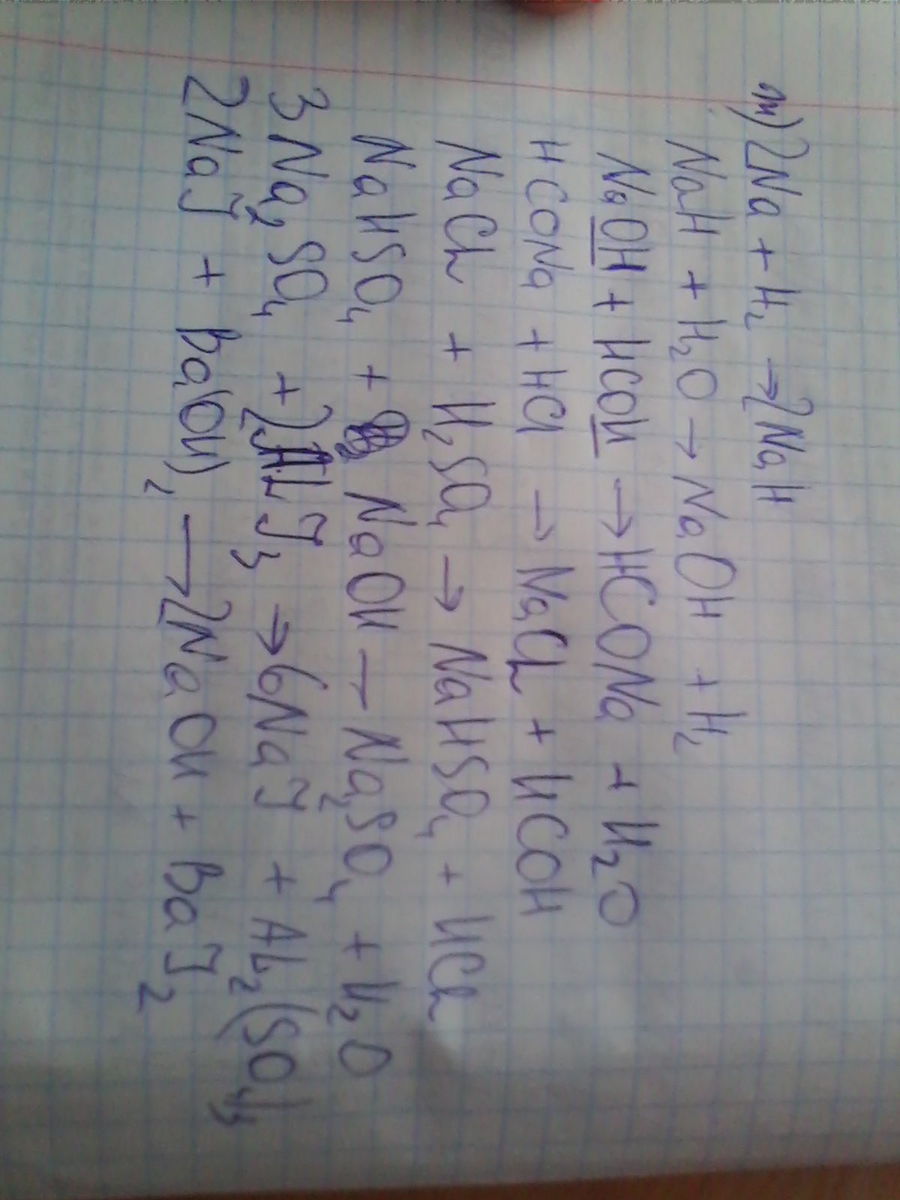 m) 2Na + H₂ → 2NaH
NaH + H₂O → NaOH + H₂
NaOH + HCOH → HCONa + H₂O
HCONa + HCl → NaCl + HCOH
NaCl + H₂SO₄ → NaHSO₄ + HCl
NaHSO₄ + NaOH – Na₂SO₄ + H₂O
3Na₂SO₄ + 2AlJ₃ → 6NaJ + Al₂(SO₄)₃
2NaJ + Ba(OH)₂ → 2NaOH + BaJ₂